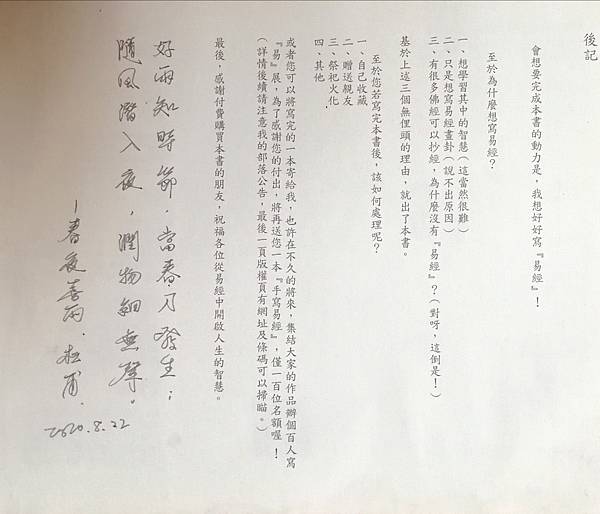 後記
會想要完成本書的動力是，我想好好寫『易經』！
至於為什麼想寫易經？
一、想學習其中的智慧（這當然很難）
二、只是想寫易經畫卦（說不出原因）
三、有很多佛經可以抄經，為什麼沒有『易經』？（對呀，這倒是！）
基於上述三個無俚頭的理由，就出了本書。
至於您若寫完本書後，該如何處理呢？
一、自己收藏
二、贈送親友
三、祭祀火化
四、其他
或者您可以將寫完的一本寄給我，也許在不久的將來，集結大家的作品辦個百人寫
『易』展，為了感謝您的付出，將再送您一本『手寫易經』，僅一百位名額喔！
（詳情後續請注意我的部落公告，最後一頁版權頁有網址及條碼可以掃瞄。）
最後，感謝付費購買本書的朋友，祝福各位從易經中開啟人生的智慧。
好雨知時節，當春乃發生；
隨風潛入夜，潤物細無聲。
－春夜喜雨．杜甫．
2020.8.22